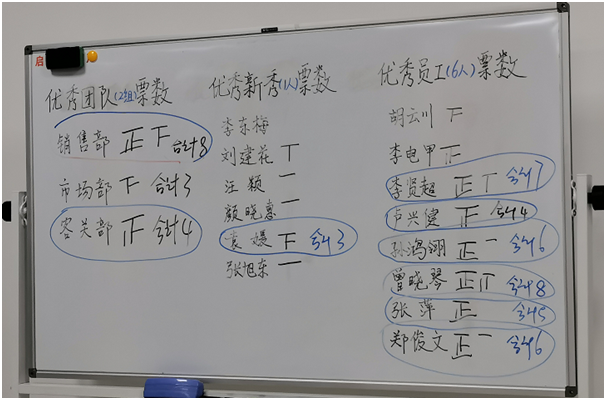 启
优秀团队(2组)票数
销售部 正下 合计8
市场部 下 合计3
客关部 正 合计4
优秀新秀(1人)票数
李东梅
刘建花 丅
汪颖 一
颜晓惠 一
袁媛 下 合计3
张旭东 一
优秀员工(6人)票数
胡云川 下
李电甲 正
李贤超 正丅 合计7
卢兴健 正 合计4
孙鸿翔 正一 合计6
曾晓琴 正 合计8
张萍 正 合计5
郑俊文 正一 合计6